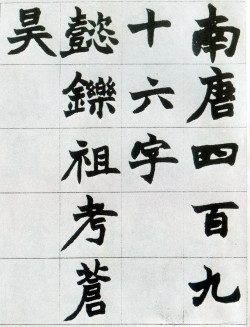 南唐四百九
十六字
懿鑠祖考蒼
昊